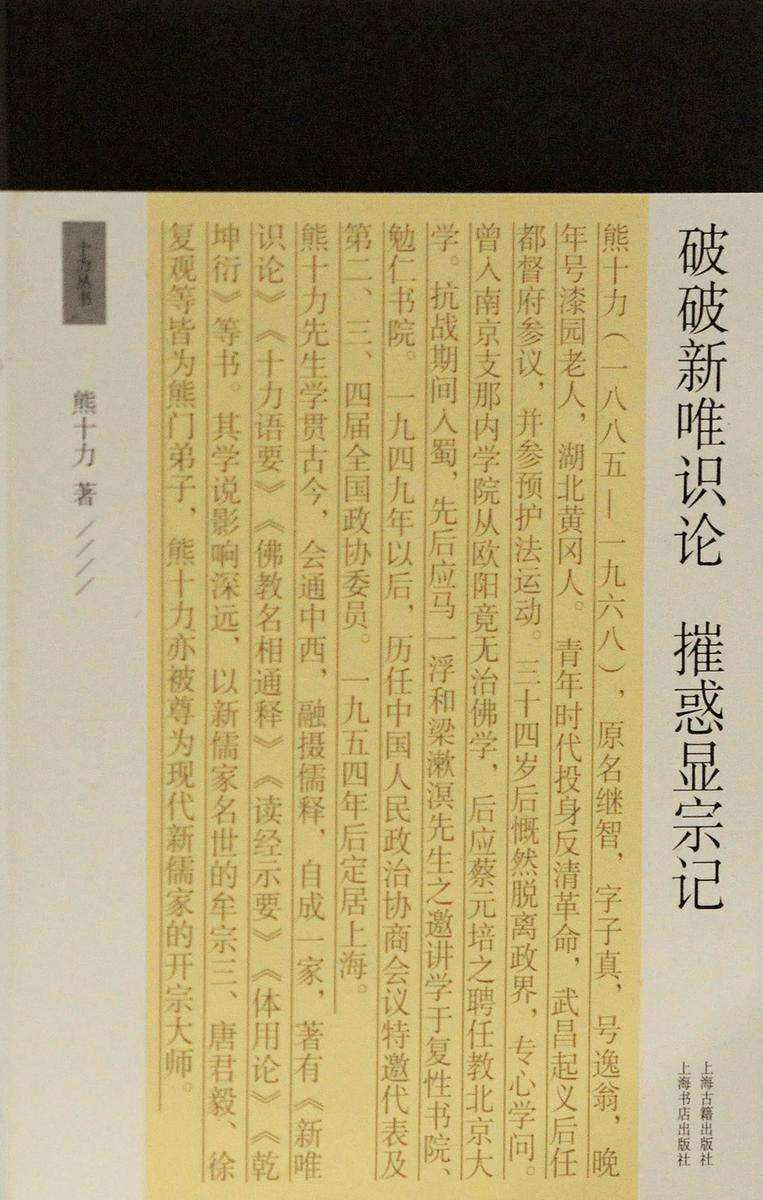 破破新唯识论　摧惑显宗记
上海古籍出版社
上海书店出版社
熊十力（一八八五—一九六八），原名继智，字子真，号逸翁，晚
年号漆园老人，湖北黄冈人。青年时代投身反清革命，武昌起义后任
都督府参议，并参预护法运动。三十四岁后慨然脱离政界，专心学问。
曾入南京支那内学院从欧阳竟无治佛学，后应蔡元培之聘任教北京大
学。抗战期间入蜀，先后应马一浮和梁漱溟先生之邀讲学于复性书院、
勉仁书院。一九四九年以后，历任中国人民政治协商会议特邀代表及
第二、三、四届全国政协委员。一九五四年后定居上海。
熊十力先生学贯古今，会通中西，融摄儒释，自成一家，著有《新唯
识论》《十力语要》《佛教名相通释》《读经示要》《体用论》《乾
坤衍》等书。其学说影响深远，以新儒家名世的牟宗三、唐君毅、徐
复观等皆为熊门弟子，熊十力亦被尊为现代新儒家的开宗大师。
十力丛书
熊十力 著////